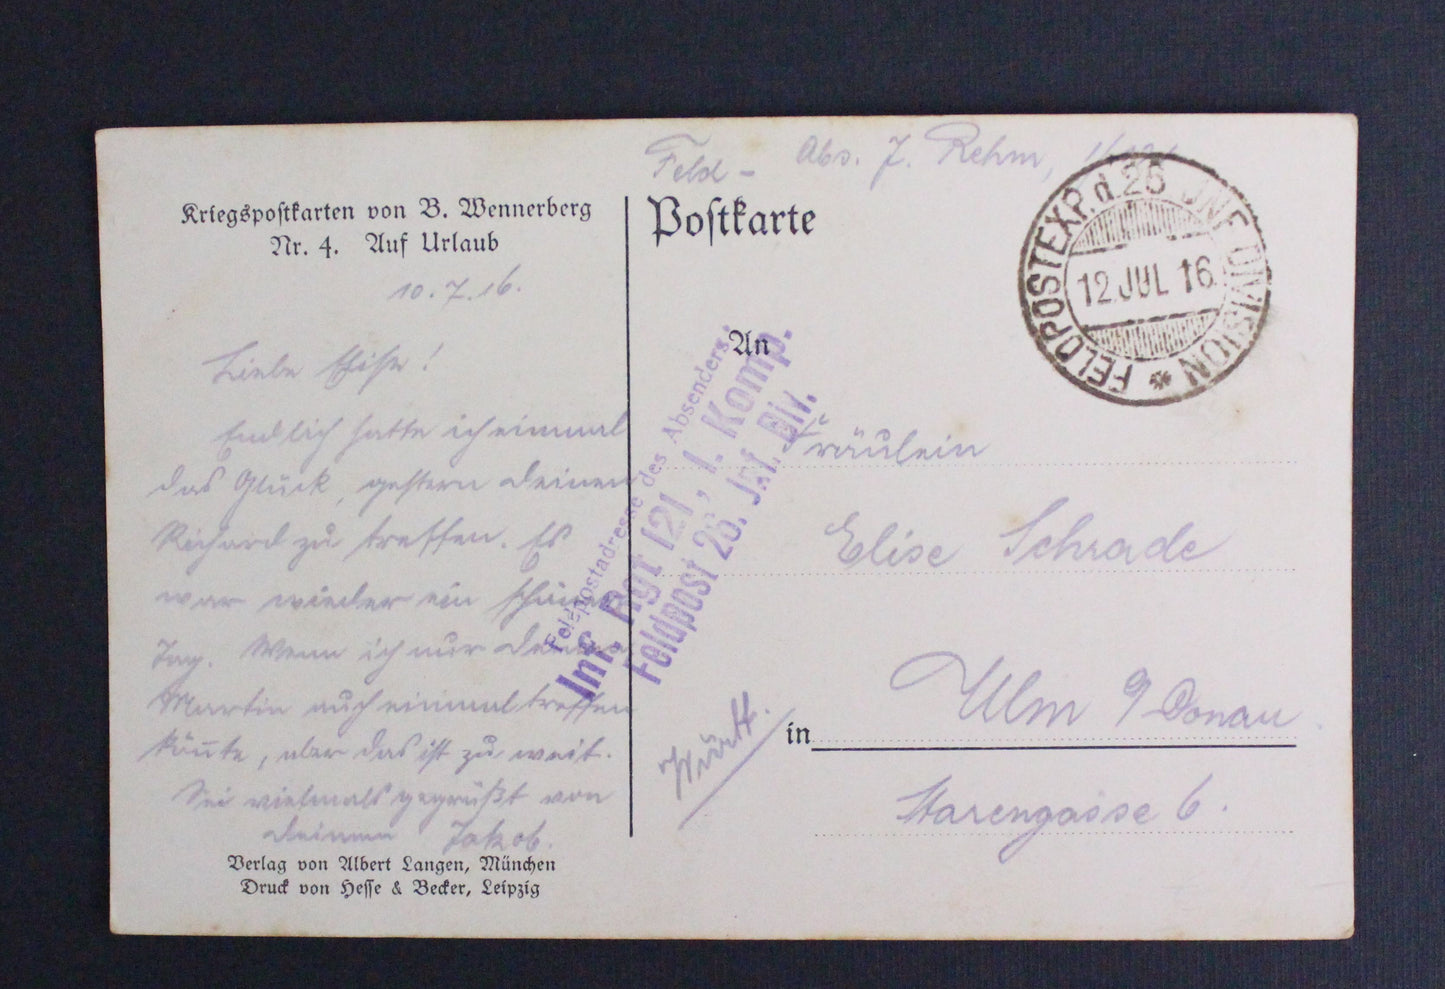 Kriegspostkarten von B. Wennerberg
Nr. 4. Auf Urlaub
10.7.16.
Liebe Elise!
Endlich hatte ich einmal
das Glück, gestern Deinen
Richard zu treffen. Es
war wieder ein schöner
Tag. Wenn ich nur Deinen
Martin auch einmal treffen
könnte, aber das ist zu weit.
Sei vielmals gegrüßt von
Deinem Jakob.
Verlag von Albert Langen, München
Druck von Hesse & Becker, Leipzig
Feld- Abs. J. Rehm,
Postkarte
FELDPOSTEXP. d. 26 INF. DIVISION
12 JUL 16
An
Feldpostadresse des Absenders:
Inf. Rgt 121, 1. Komp.
Feldpost 26. Inf. Div.
Fräulein
Elise Schrade
in Ulm a/Donau.
Württ.
Starengasse 6.